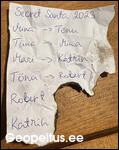 Secret Santa 2023
Juna → Tõnu
Tuna Juna
Mari → Katrin
Tõnu → Robert
Robert
Katrin
Geopeitus.ee